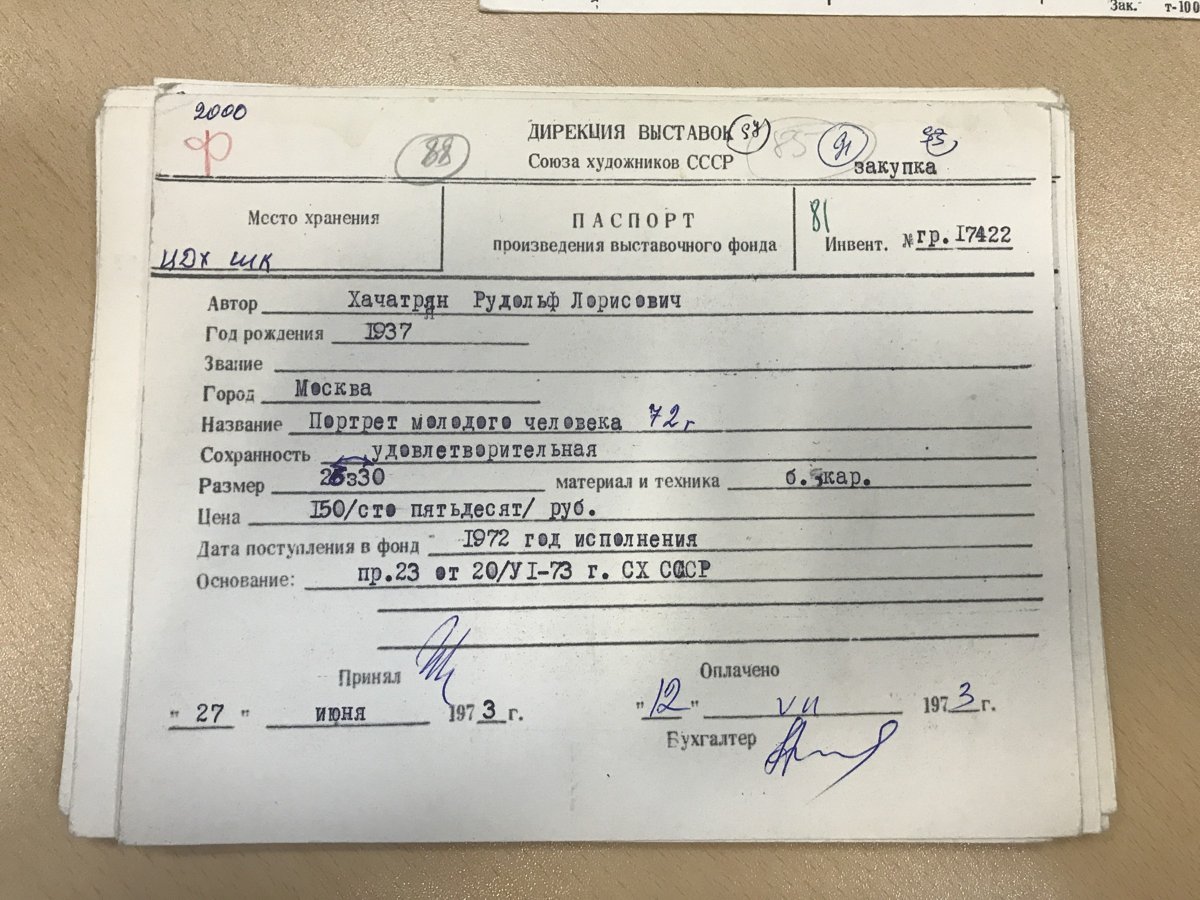 Зак. т-100
2000
ДИРЕКЦИЯ ВЫСТАВОК 97 85 91 93
ф 88
Союза художников СССР закупка
Место хранения
ПАСПОРТ
81
произведения выставочного фонда
Инвент. № гр.I7422
ЦДХ шк
Автор Хачатрян Рудольф Лорисович
Год рождения I937
Звание
Город Москва
Название Портрет молодого человека 72 г
Сохранность удовлетворительная
Размер материал и техника б. кар.
Цена I50/сто пятьдесят/ руб.
Дата поступления в фонд I972 год исполнения
Основание: пр.23 от 20/УI-73 г. СХ СССР
Принял
Оплачено
" 27 " июня 1973 г.
"12" VII 1973 г.
Бухгалтер